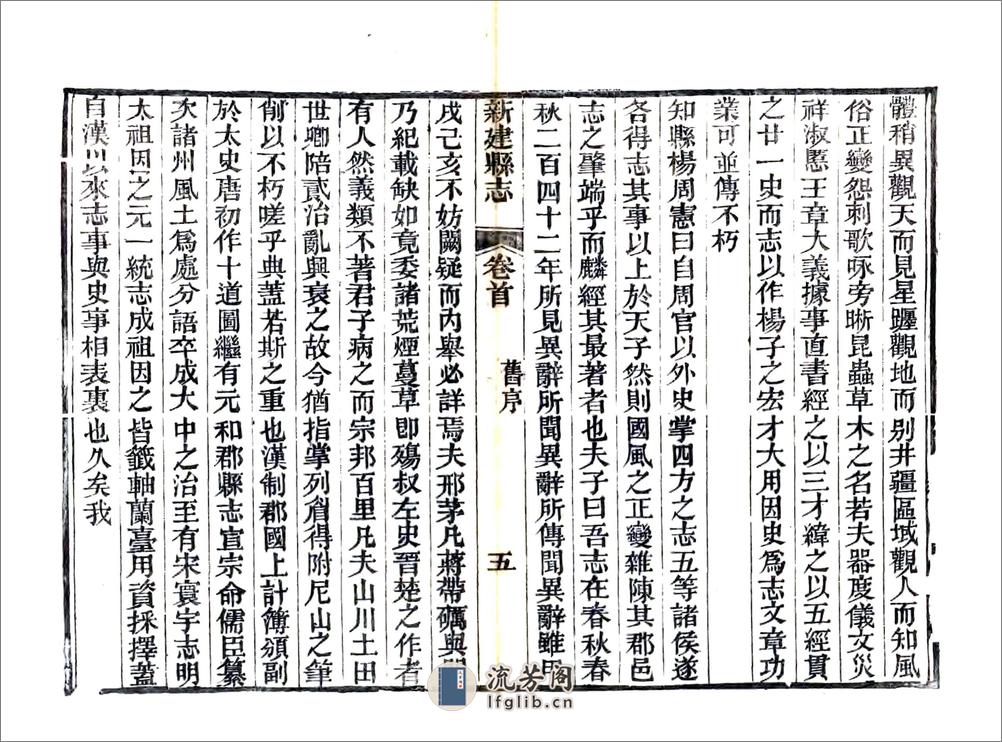 體稍異觀天而見星躔觀地而别井疆區域觀人而知風
俗正變怨刺歌咏旁晰昆蟲草木之名若夫器度儀文災
祥淑慝王章大義據事直書經之以三才緯之以五經貫
之廿一史而志以作楊子之宏才大用因史爲志文章功
業可並傳不朽
知縣楊周憲曰自周官以外史掌四方之志五等諸侯遂
各得志其事以上於天子然則國風之正變雜陳其郡邑
志之肇端乎而麟經其最著者也夫子曰吾志在春秋春
秋二百四十二年所見異辭所聞異辭所傳聞異辭雖甲
新建縣志 卷首 舊序 五
戌己亥不妨闕疑而内舉必詳焉夫邢茅凡蔣帶礪與
乃紀載缺如竟委諸荒煙蔓草即殤叔左史晉楚之作者
有人然義類不著君子病之而宗邦百里凡夫山川土田
世卿陪貳治亂興衰之故今猶指掌列眉得附尼山之筆
削以不朽嗟乎典蓋若斯之重也漢制郡國上計簿須副
於太史唐初作十道圖繼有元和郡縣志宣宗命儒臣纂
次諸州風土爲處分語卒成大中之治至有宋寰宇志明
太祖因之元一統志成祖因之皆籤軸蘭臺用資採擇蓋
自漢以來志事與史事相表裏也久矣我
流芳阁
lfglib.cn